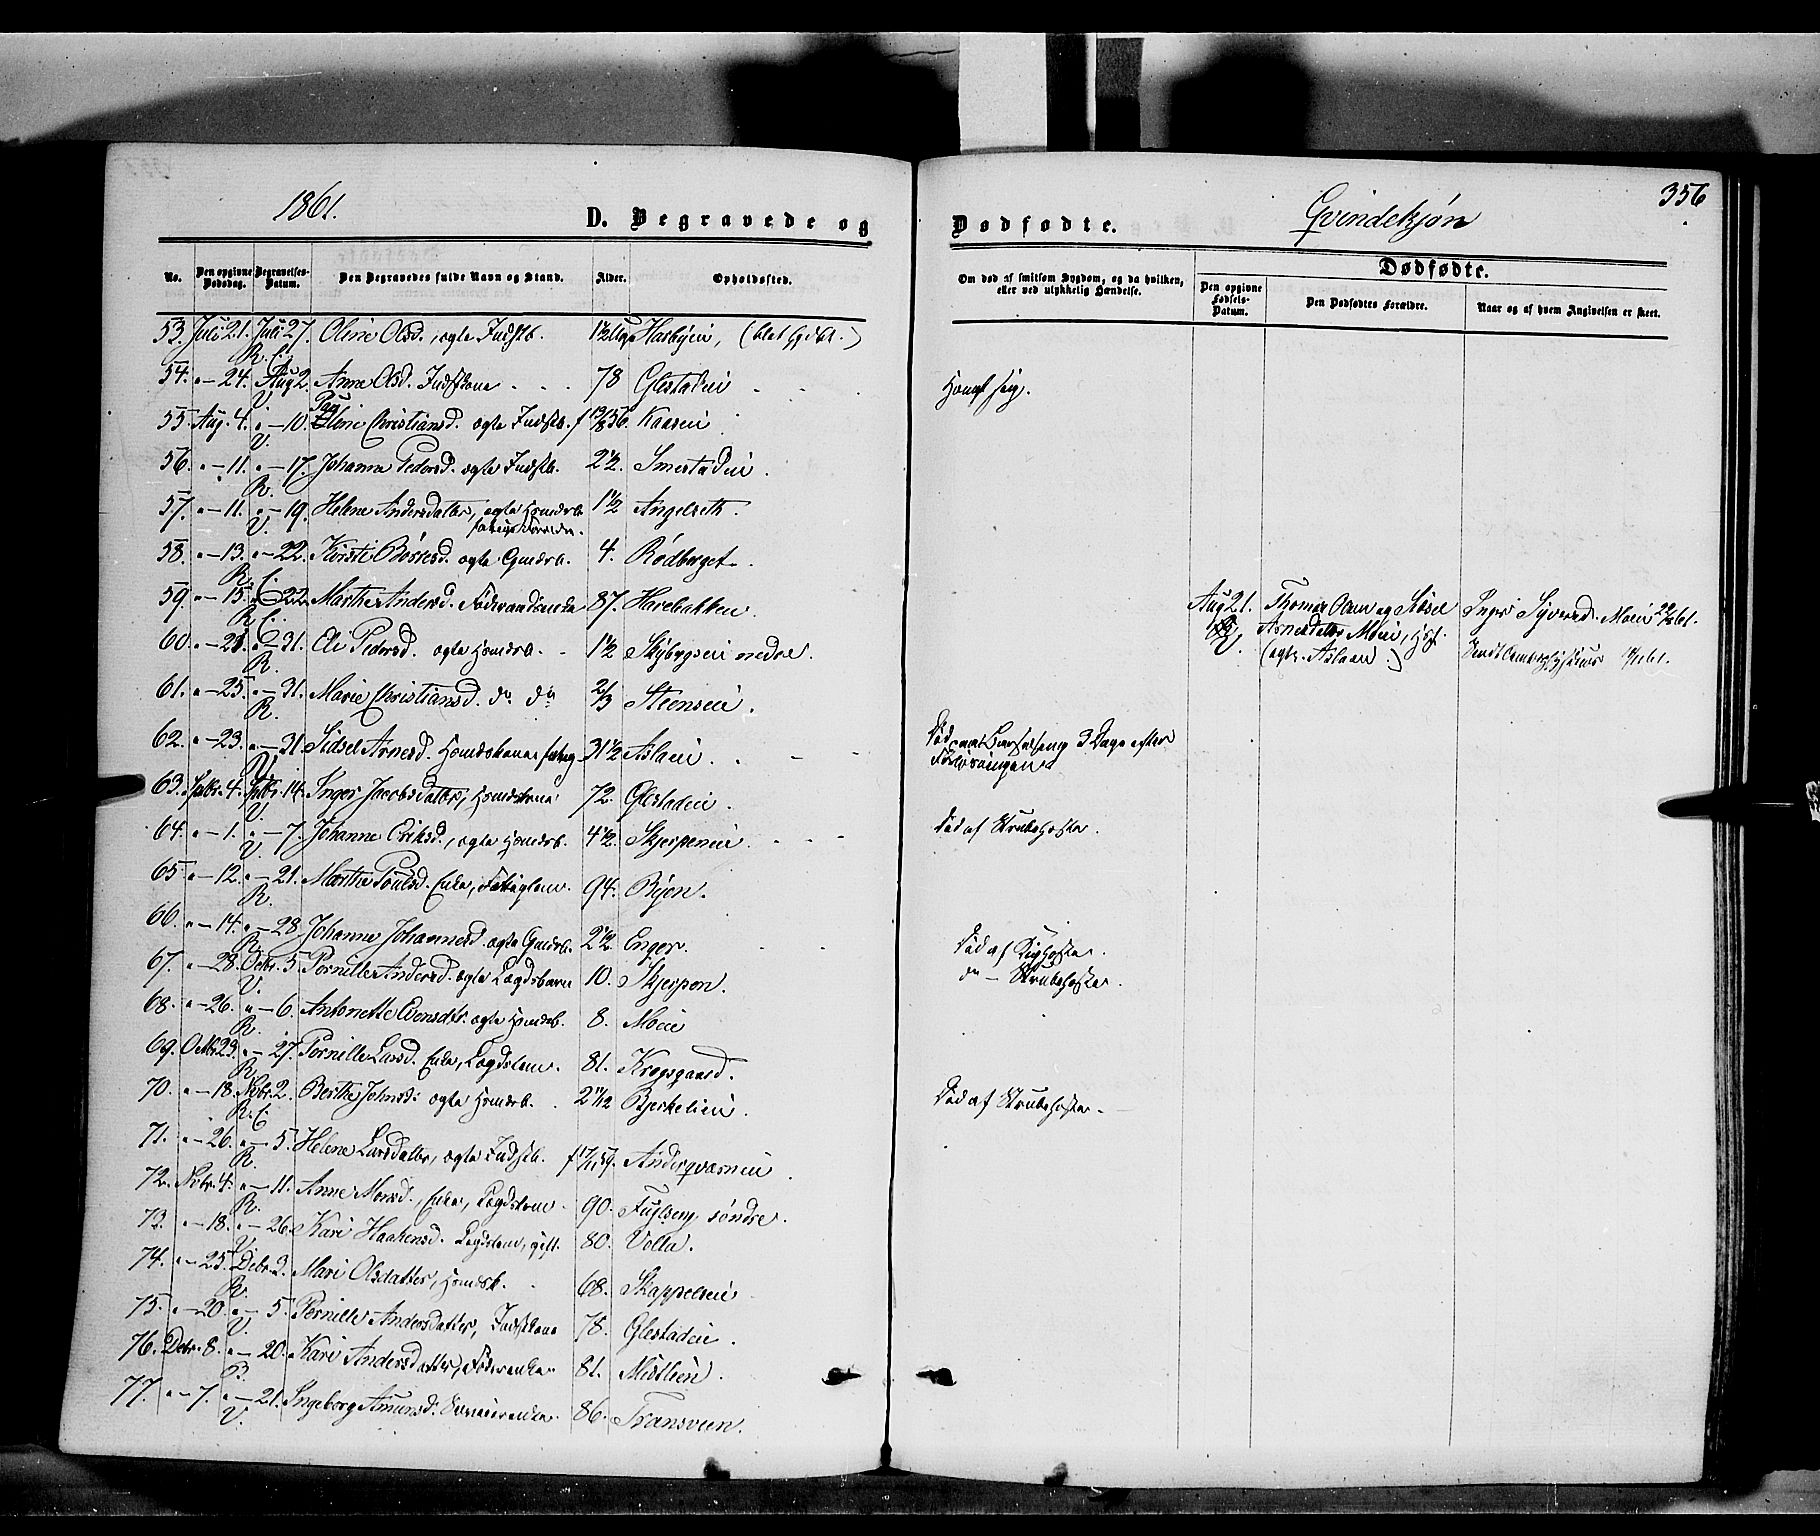 1861.
D. Begravede og
Dødfødte.
Qvindekjøn
356
No.
Den opgivne Dødsdag.
Begravelses-Datum.
Den Begravedes fulde Navn og Stand.
Alder.
Opholdssted.
Om død af smitsom Sygdom, og da hvilken, eller ved ulykkelig Hændelse.
Dødfødte.
Den opgivne Fødsels-Datum.
Den Dødfødtes Forældre.
Naar og af hvem Angivelsen er skeet.
53. Juli 21. Juli 27. Oline Olsd., ægte Indstb. 1½ Uge
R. C.
54. " - 24. Aug 2. Anne Olsd. Indstkone 78 Glestadeie Hængt sig.
V.
55. Aug. 4. " - 10. Christiansd. ægte Indstb. Kaaseie
V.
56. " - 11. " - 17. Johanne Pedersd. ægte Indstb. 2½. Smestadeie.
R.
57. " - 11. " - 19. Helene Andersdatter, ægte Hsmdsb. 1½ Angelseth.
V.
58. " - 13. " - 22. Kirsti Børresd. ægte Gmdsb. 4. Rødberget.
R. C.
59. " - 15. " 22. Marthe Andersd. Føderaadsenke 87. Harebakken.
R. C.
Aug 21. Thomas Olsen og Sidsel
Arnesdatter Moeie, Hsf.
(ægte. Aslaeie.)
V.
Inger Syversd. Moeie 22/8 61.
60. " - 21. " 31. Eli Pedersd. ægte Hsmdsb. 1½ Skybergseie nedre.
R.
61. " - 25. " - 31. Marie Christiansd. do do 2/3 Steenseie.
R.
62. " - 23. " - 31. Sidsel Arnesd. Hsmdskone 31½ Aslaeie. Død paa Barselseng 3 Dage efter
Forløsningen.
V.
63. Septbr. 4. Septbr. 14. Inger Jacobsdatter, Hsmdskone 72. Glestadeie.
V.
64. " - 1. " - 7. Johanne Eriksd., ægte Hsmdsb. 4½. Skjerpeneie. Død af Strubehoste.
V.
65. " - 12. " - 21. Marthe Poulsd. Enke, Fattiglem. 94. Byen.
R.
66. " - 14. " - 28. Johanne Johannesd. ægte Gmdsb. 2½. Enger. Død af Kighoste.
R.
67. " - 28. Octbr. 5. Pernille Andersd. ægte Lægdsbarn 10. Skjerpen. do - Strubehoste.
V.
68. " - 26. " - 6. Antonette Evensdtr. ægte Hsmdsb. 8. Moeie
R.
69. Octbr. 23. " - 27. Pernille Larsd. Enke, Lægdslem. 81. Krogsgaard.
R.
70. " - 18. Novbr. 2. Berthe Johnsd. ægte Hsmdsb. 2 Bjerkelieie. Død af Strubehoste.
R. C.
71. " - 26. " - 5. Helene Larsdatter, ægte Indstb. Andersqvarneie
R.
72. Novbr. 4. " - 11. Anne Monsd., Enke, Lægdslem 90. Fuglseng søndre.
R.
73. " - 18. " - 26. Kari Haakensd. Lægdslem, gift. 80. Volla.
V.
74. " - 25. Debr. 2. Mari Olsdatter, Hsmdsk. 68. Skappelseie
R.
75. " - 20. " - 5. Pernille Andersdatter, Indstkone 78. Glestadeie.
V.
76. Debr. 8. " - 20. Kari Andersdatter, Føderenke 81. Midtlieie.
R.
77. " - 7. " - 21. Ingeborg Amundsd. 86. Fransveen.
V.